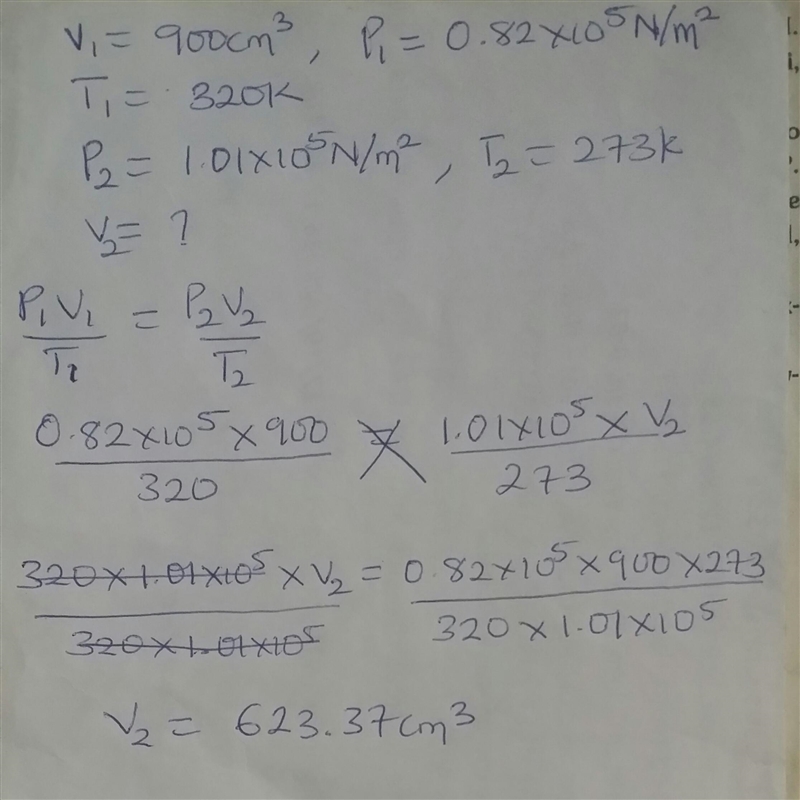 V₁ = 900cm³, P₁ = 0.82×10⁵N/m²
T₁ = 320K
P₂ = 1.01×10⁵N/m², T₂ = 273k
V₂ = ?
P₁V₁/T₁ = P₂V₂/T₂
0.82×10⁵×900/320 = 1.01×10⁵×V₂/273
320×1.01×10⁵×V₂/320×1.01×10⁵ = 0.82×10⁵×900×273/320×1.01×10⁵
V₂ = 623.37cm³